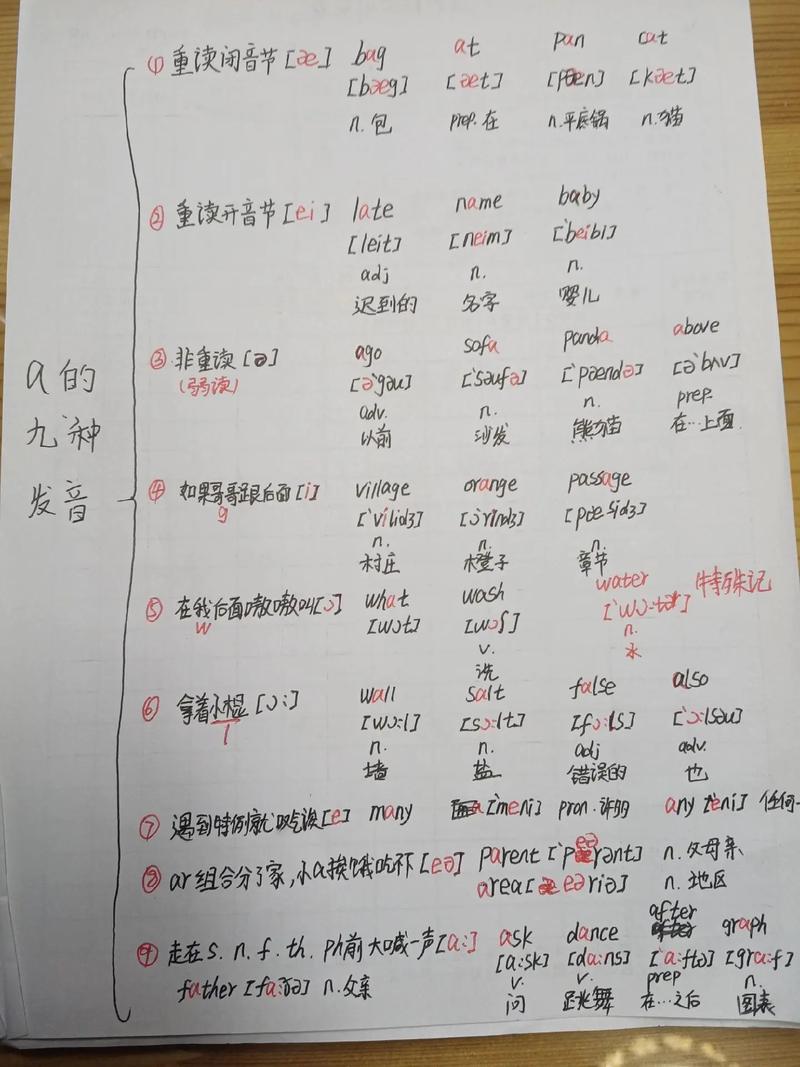 a的
九种
发音
① 重读闭音节 [æ] bag at pan cat
[bæg] [æt] [pæn] [kæt]
n.包 prep.在 n.平底锅 n.猫
② 重读开音节 [ei] late name baby
[leit] [neim] ['beibi]
adj n. n.
迟到的 名字 婴儿
③ 非重读 [ə] ago sofa panda above
(弱读) [ə'gəu] ['səufə] ['pændə] [ə'bʌv]
adv. n. n. prep.
以前 沙发 熊猫 在…上面
④ 如果哥哥跟后面 [i] village orange passage
g ['vilidʒ] ['ɔrindʒ] [pæsidʒ]
n. n. n.
村庄 橙子 章节
⑤ 在我后面嗷嗷叫 [ɔ] what wash water 特殊记
w [wɔt] [wɔʃ] ['wɔ:tə]
v. n.
洗 水
⑥ 拿着小棍 [ɔ:] wall salt false also
l [wɔ:l] [sɔ:lt] [fɔ:ls] ['ɔ:lsəu]
n. n. adj adv.
墙 盐 错误的 也
⑦ 遇到特例就吃诶 [e] many ['meni] pron.许多 any ['eni] 任何
⑧ ar组合分了家,小a挨饿吃不下 [eə] parent ['peərənt] n.父母亲
area [eəriə] n.地区
⑨ 走在s.n.f.th.ph前大喊一声 [a:] ask dance after graph
[a:sk] [da:ns] ['a:ftə] [gra:f]
father [fa:ðə] n.父亲 v. v. prep n.
问 跳舞 在…之后 图表